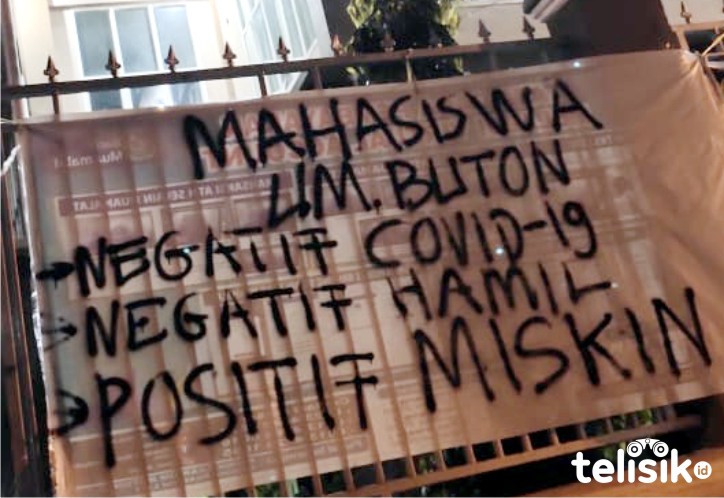 MAHASISWA
UM. BUTON
→NEGATIF COVID-19
→NEGATIF HAMIL
→POSITIF MISKIN
telisik id